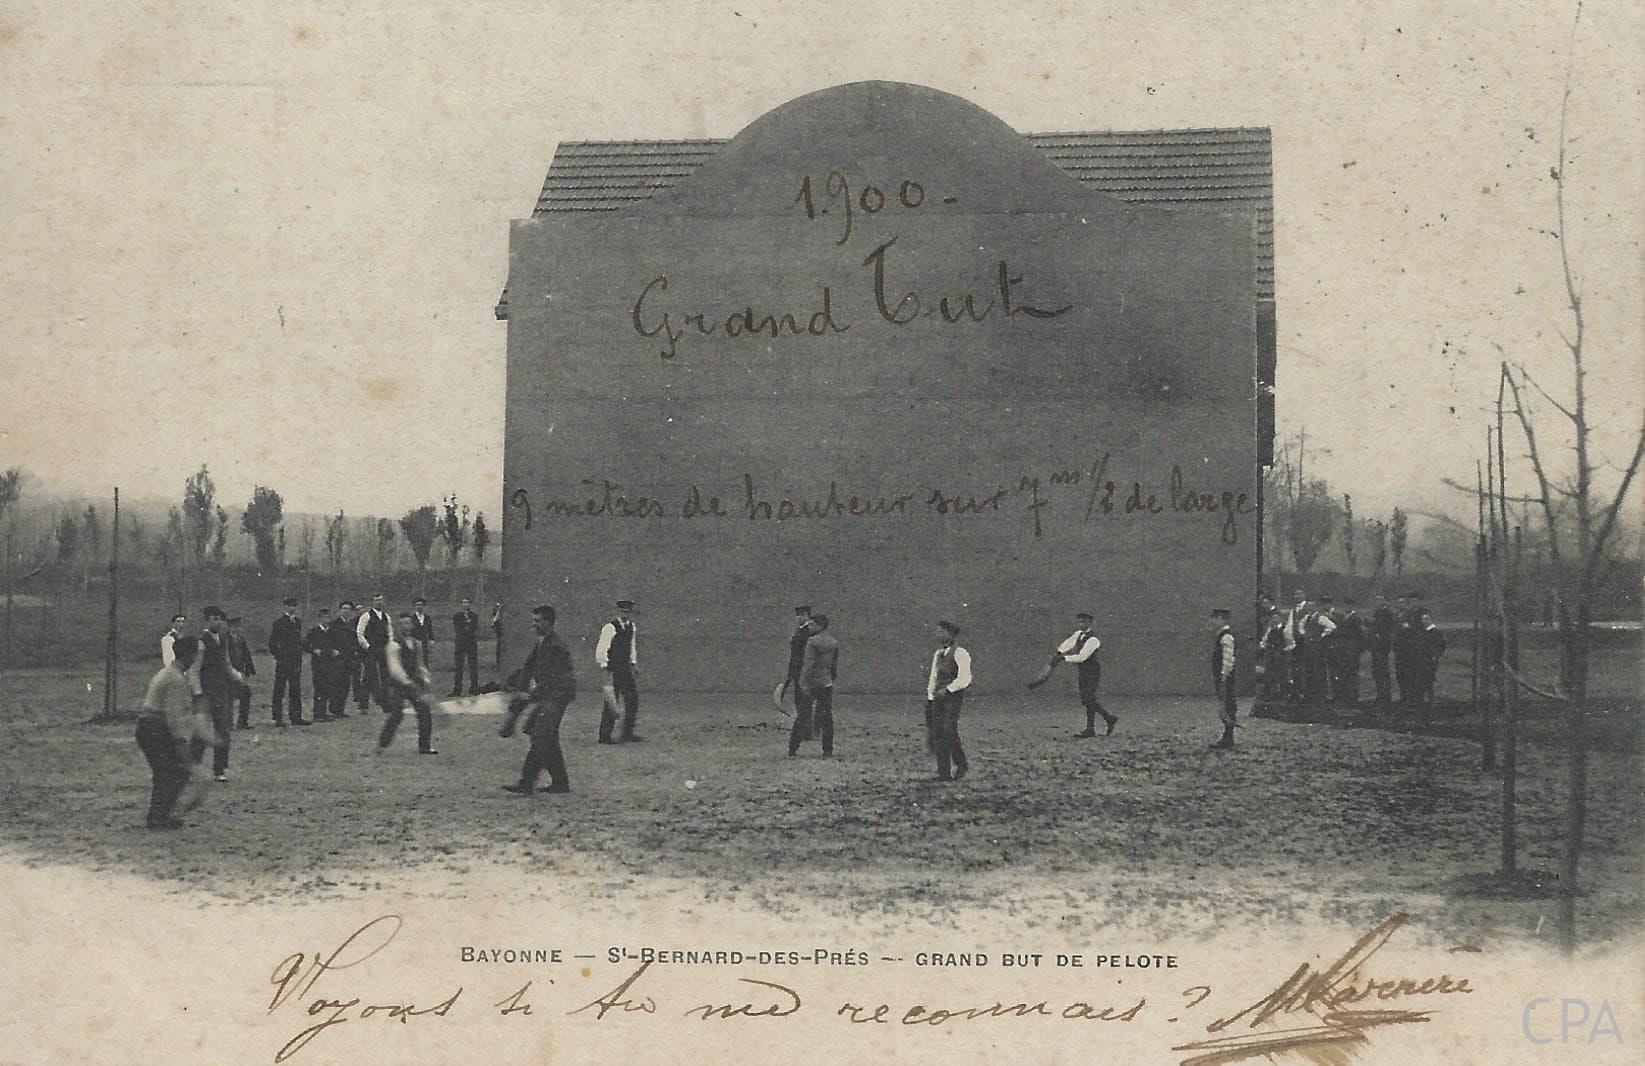 1.900.-
Grand But
9 mètres de hauteur sur 7m 1/2 de large
BAYONNE — St-BERNARD-DES-PRÉS -- GRAND BUT DE PELOTE
Voyons si tu me reconnais ?
CPA